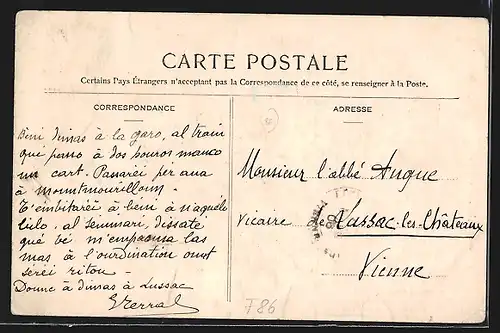 CARTE POSTALE
Certains Pays Étrangers n'acceptant pas la Correspondance de ce côté, se renseigner à la Poste.
CORRESPONDANCE
Beni dimas à la garo, al train
qui parno à dos houros manco
un cart. Panarei per ana
à mountmourilloun.
T'embitarei à beni à n'aquelo
bilo, al seminari, dissate
que bé m'empaousa las
mas à l'ourdination ount
serei ritou -
Dounc à dimas à Lussac
ADRESSE
Monsieur l'abbé Auque
Vicaire de Lussac-les-Châteaux
Vienne
T86